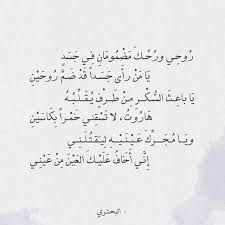 رُوحِي ورُحُكَ مَضْمُومَانِ فِي جَسَدٍ
يَا مَنْ رأى جَسَداً قَدْ ضَمَّ رُوحَيْنِ
يَا باعِثَ السُّكْرِ مِنْ طَرْفٍ يُقَلِّبُهُ
هَارُوتُ، لا تَسْقِنِي خَمْراً بِكَاسَيْنِ
ويَا مُحَرِّكَ عَيْنَيْهِ لِيَقْتُلَنِي
إنِّي أخَافُ عَلَيْكَ العَيْنَ مِنْ عَيْنِي
- البحتري